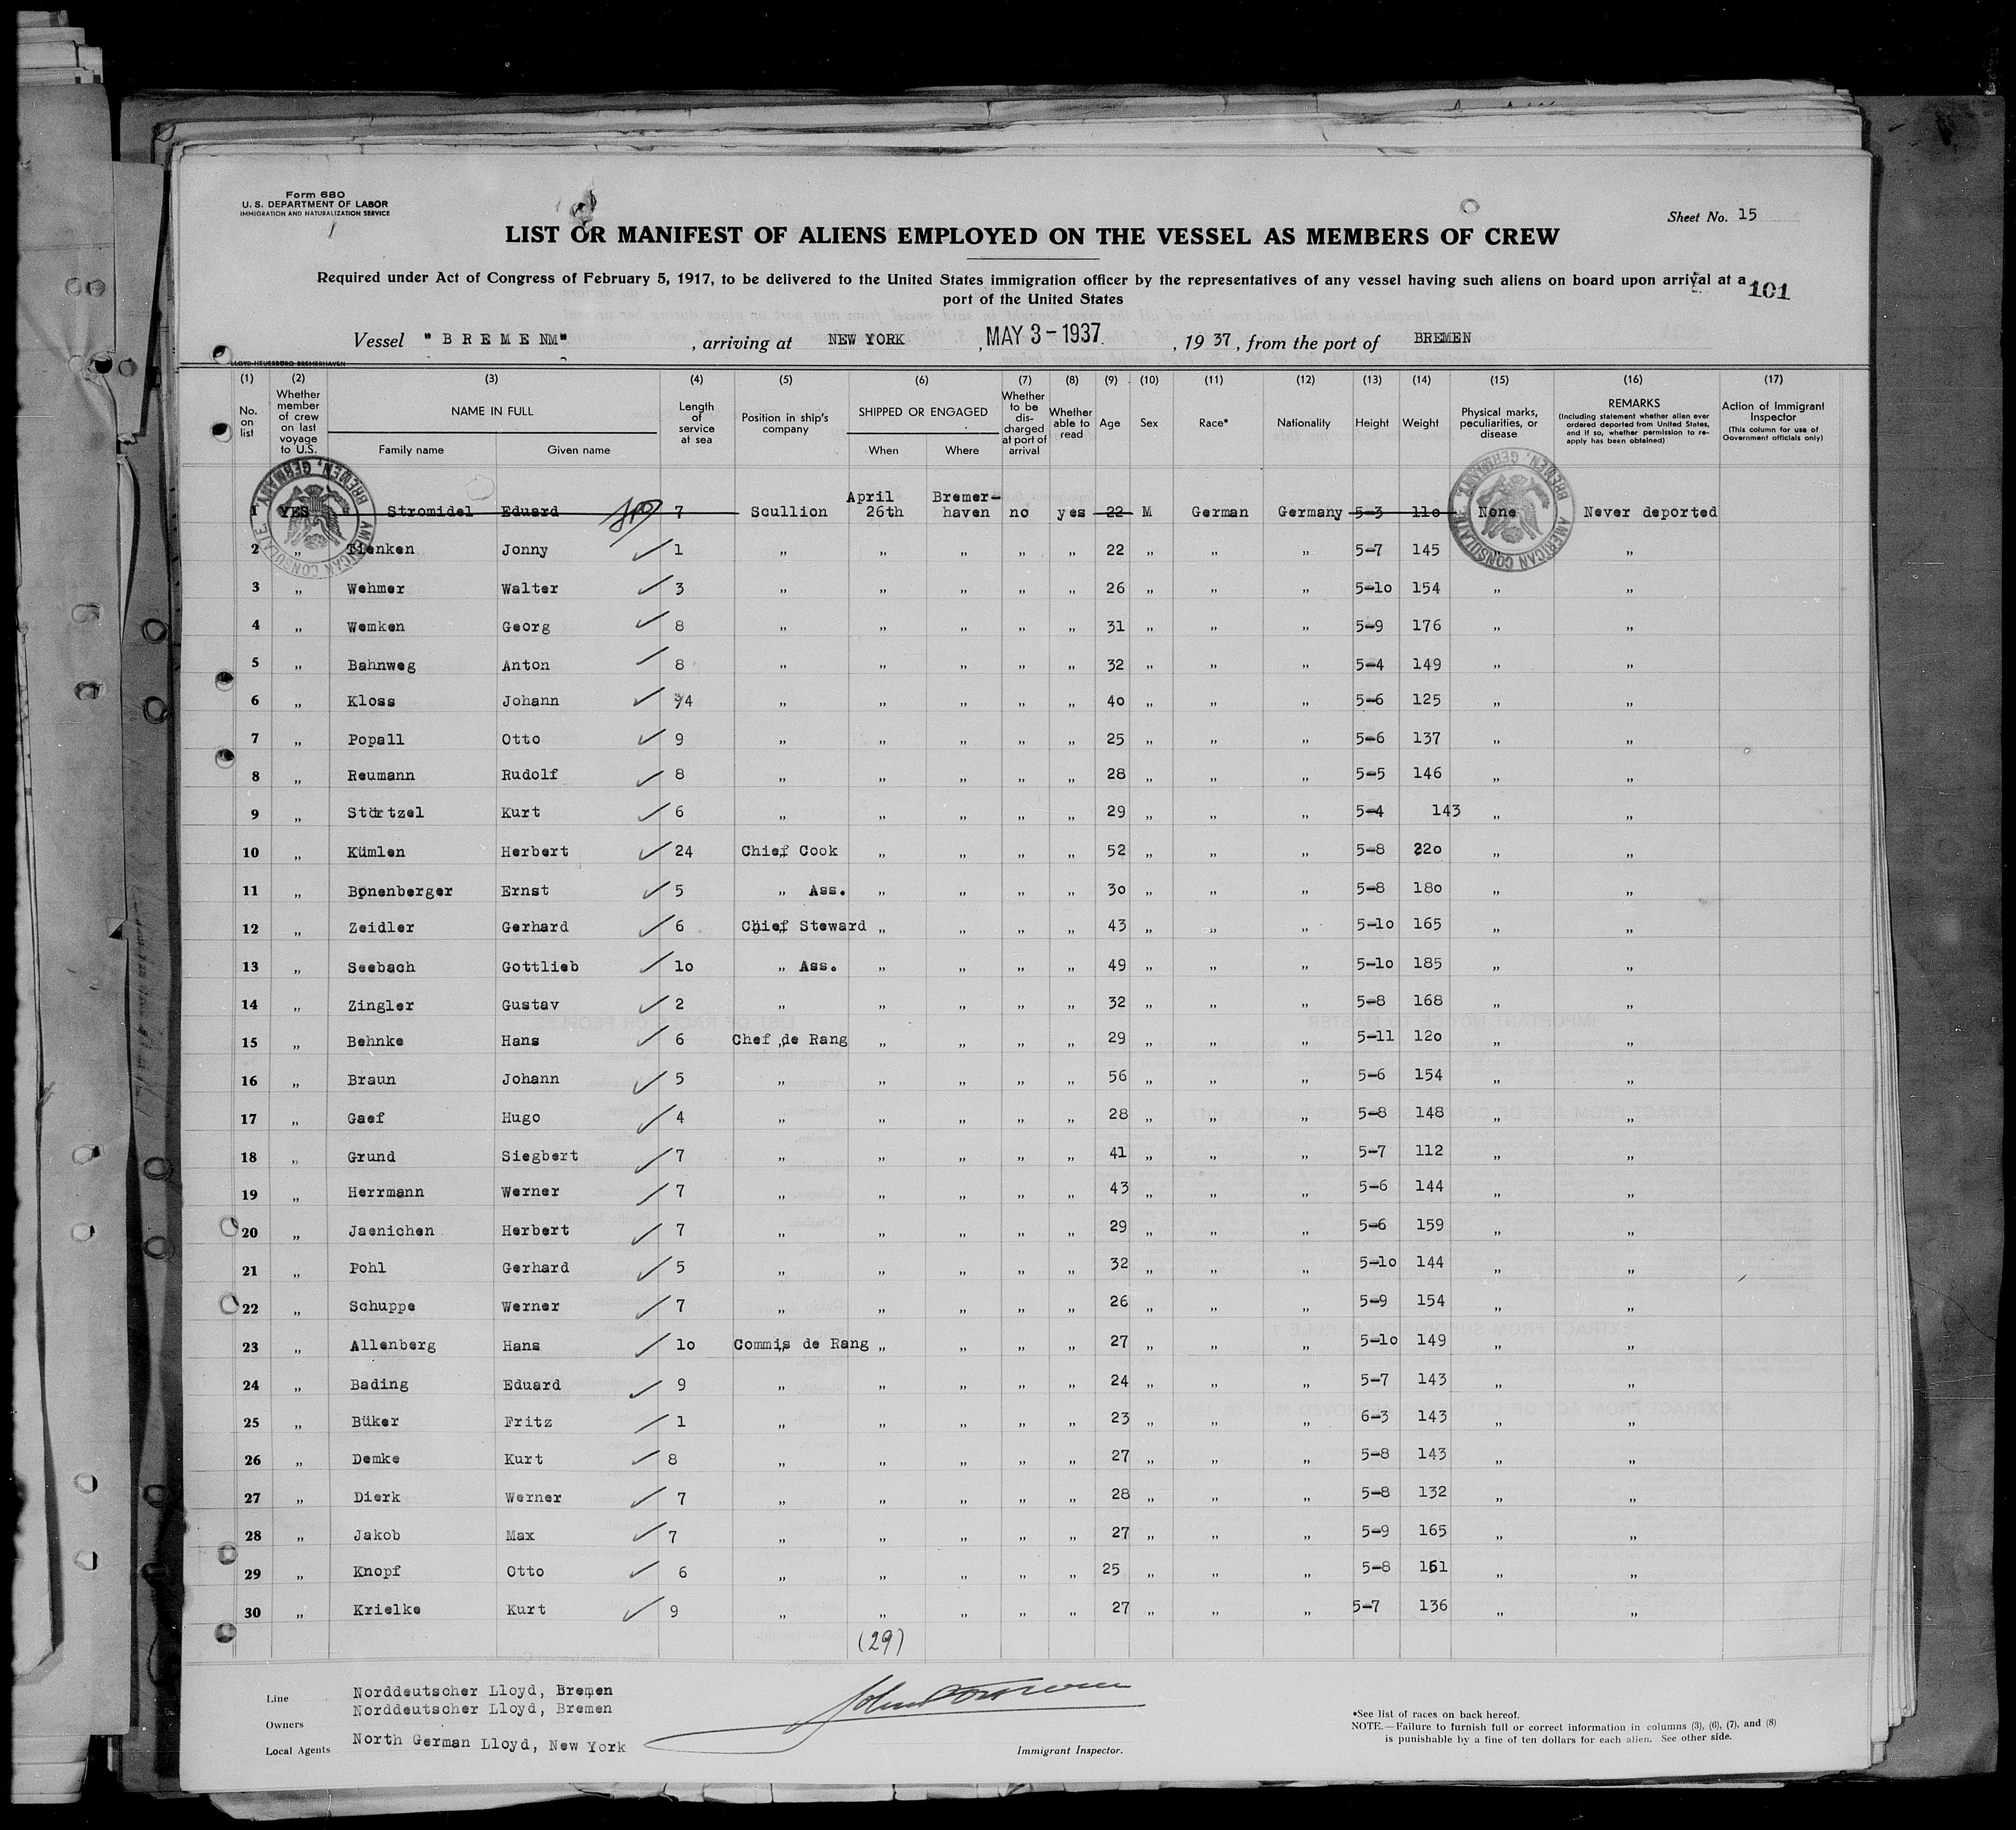 Form 680
U. S. DEPARTMENT OF LABOR
IMMIGRATION AND NATURALIZATION SERVICE
Sheet No. 15
LIST OR MANIFEST OF ALIENS EMPLOYED ON THE VESSEL AS MEMBERS OF CREW
Required under Act of Congress of February 5, 1917, to be delivered to the United States immigration officer by the representatives of any vessel having such aliens on board upon arrival at a
port of the United States
101
Vessel "BREMENM" , arriving at NEW YORK , MAY 3-1937 , 19 37 , from the port of BREMEN
LLOYD-HEUERBÜRO BREMERHAVEN
(1) (2) (3) (4) (5) (6) (7) (8) (9) (10) (11) (12) (13) (14) (15) (16) (17)
No. on list | Whether member of crew on last voyage to U.S. | NAME IN FULL | Family name | Given name | Length of service at sea | Position in ship's company | SHIPPED OR ENGAGED | When | Where | Whether to be discharged at port of arrival | Whether able to read | Age | Sex | Race* | Nationality | Height | Weight | Physical marks, peculiarities, or disease | REMARKS (Including statement whether alien ever ordered deported from United States, and if so, whether permission to re-apply has been obtained) | Action of Immigrant Inspector (This column for use of Government officials only)
AMERICAN CONSULATE BREMEN, GERMANY
AMERICAN CONSULATE BREMEN, GERMANY
1 YES Stromidel Eduard 7 Scullion April 26th Bremer-haven no yes 22 M German Germany 5-3 11o None Never deported
2 " Tienken Jonny 1 " " " " " 22 " " " 5-7 145 " "
3 " Wehmer Walter 3 " " " " " 26 " " " 5-1o 154 " "
4 " Wemken Georg 8 " " " " " 31 " " " 5-9 176 " "
5 " Bahnweg Anton 8 " " " " " 32 " " " 5-4 149 " "
6 " Kloss Johann 4 " " " " " 4o " " " 5-6 125 " "
7 " Popall Otto 9 " " " " " 25 " " " 5-6 137 " "
8 " Reumann Rudolf 8 " " " " " 28 " " " 5-5 146 " "
9 " Störtzel Kurt 6 " " " " " 29 " " " 5-4 143 " "
10 " Kümlen Herbert 24 Chief Cook " " " " 52 " " " 5-8 22o " "
11 " Bonenberger Ernst 5 " Ass. " " " " 3o " " " 5-8 18o " "
12 " Zeidler Gerhard 6 Chief Steward " " " " 43 " " " 5-1o 165 " "
13 " Seebach Gottlieb 1o " Ass. " " " " 49 " " " 5-1o 185 " "
14 " Zingler Gustav 2 " " " " " 32 " " " 5-8 168 " "
15 " Behnke Hans 6 Chef de Rang " " " " 29 " " " 5-11 12o " "
16 " Braun Johann 5 " " " " " 56 " " " 5-6 154 " "
17 " Gaef Hugo 4 " " " " " 28 " " " 5-8 148 " "
18 " Grund Siegbert 7 " " " " " 41 " " " 5-7 112 " "
19 " Herrmann Werner 7 " " " " " 43 " " " 5-6 144 " "
20 " Jaenichen Herbert 7 " " " " " 29 " " " 5-6 159 " "
21 " Pohl Gerhard 5 " " " " " 32 " " " 5-1o 144 " "
22 " Schuppe Werner 7 " " " " " 26 " " " 5-9 154 " "
23 " Allenberg Hans 1o Commis de Rang " " " " 27 " " " 5-1o 149 " "
24 " Bading Eduard 9 " " " " " 24 " " " 5-7 143 " "
25 " Büker Fritz 1 " " " " " 23 " " " 6-3 143 " "
26 " Demke Kurt 8 " " " " " 27 " " " 5-8 143 " "
27 " Dierk Werner 7 " " " " " 28 " " " 5-8 132 " "
28 " Jakob Max 7 " " " " " 27 " " " 5-9 165 " "
29 " Knopf Otto 6 " " " " " 25 " " " 5-8 161 " "
30 " Krielke Kurt 9 " " " " " 27 " " " 5-7 136 " "
(29)
Line Norddeutscher Lloyd, Bremen
Owners Norddeutscher Lloyd, Bremen
Local Agents North German Lloyd, New York
Immigrant Inspector.
*See list of races on back hereof.
NOTE.—Failure to furnish full or correct information in columns (3), (6), (7), and (8)
is punishable by a fine of ten dollars for each alien. See other side.